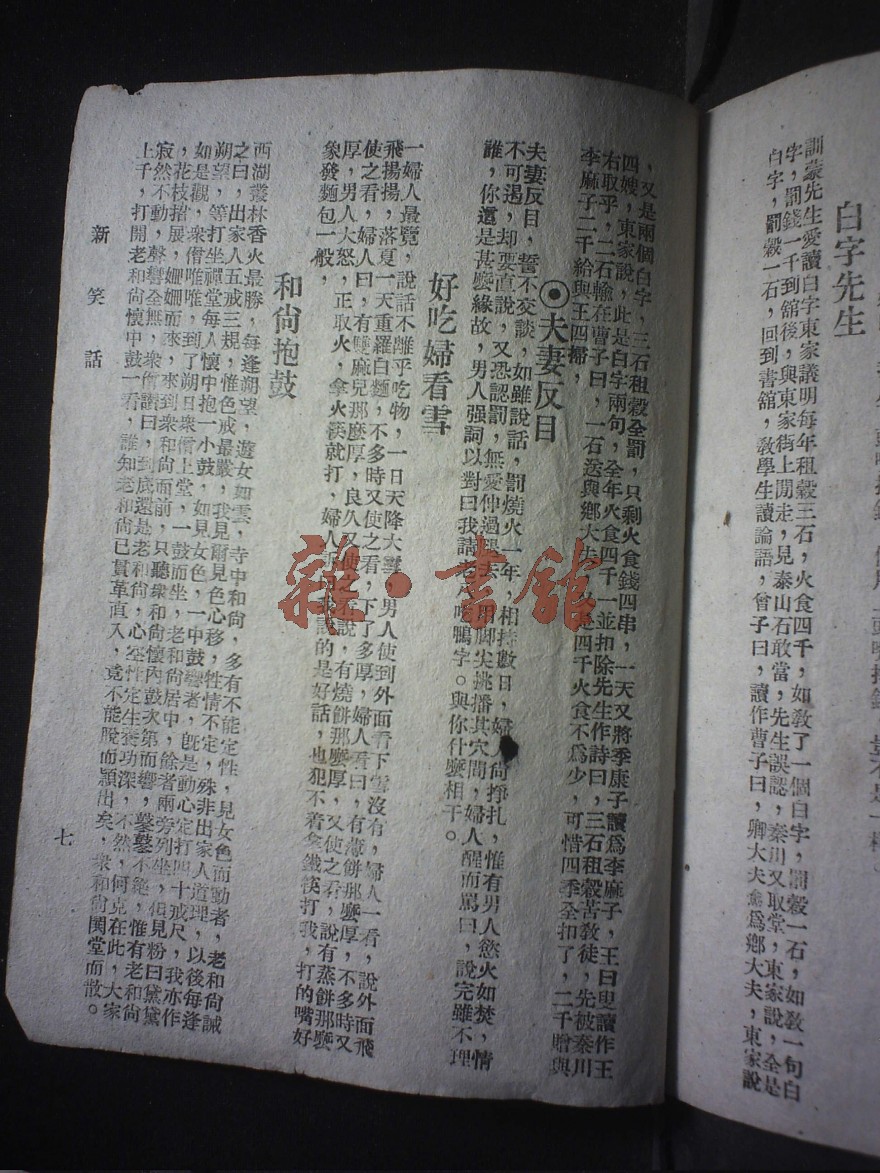 白字先生
訓蒙先生愛讀白字東家議明每年租穀三石，火食四千，如教了一個白字，罰穀一石，如教一句白
字，罰錢一千到舘後，與東家街上閒走，見泰山石敢當，先生誤認，秦川又取堂，東家說，全是
白字，罰穀一石，回到書舘，教學生讀論語，曾子曰，讀作曹子曰，卿大夫爲鄉大夫，東家說
，又是兩個白字，三石租穀全罰，只剩火食錢四串，一天又將季康子讀爲李麻子，王曰叟讀作王
四嫂，東家說，此是白字兩句，全年火食四千一並扣除先生作詩曰，三石租穀苦教徒，先被秦川
右取乎，二石輸在曹子曰，一石送與鄉大夫，又四千火食不爲少，可惜四季全扣了，二千贈與
李麻子二千給與王四嫂，
◉夫妻反目
夫妻反目，誓不交談，如雖說話，罰燒火一年，相持數日，婦人尙掙扎，惟有男人慾火如焚，情
不可遏，却要直說，又恐認罰，無愛仲過去，用脚尖挑播其穴間，婦人醒而罵曰，說完雖不理
誰，你還是甚麼緣故，男人强詞以對曰我請老鴨字。與你什麼相干。
好吃婦看雪
一婦人最覽，說話不離乎吃物，一日天降大雪，男人使到外面看下雪沒有，婦人一看，說外面飛
飛揚揚，落夏一天重羅白麵，不多時又使之看，下了多厚，婦人看曰，有薄餅那麼厚，不多時又
使之看，婦人曰，有雙麻兒那麼厚，良久又使之看說，有燒餅那麼厚，又使之看，說有蒸餅那麼
厚，男人大怒，正取火，拿火筷就打，婦人說的是好話，也犯不着拿鐵筷打我，打的嘴好
象發麵包一般，
和尙抱鼓
西湖叢林香火最勝，每逢朔望，遊女如雲，寺中和尙，多有不能定性，見女色而動者，老和尙誡
之曰，出家人五戒三規，惟色戒最嚴，我見爾見色心移，牲情不定，殊非出家人道理，以後每逢
朔望，等打坐禪堂每人懷中抱一小鼓，如見女色，一中鼓響者，旣是動心定打四十戒尺，我亦作
如是觀，衆僧唯唯，到了朔日衆僧上堂，一鼓而坐，老和尙居中，餘者兩旁列坐，但見粉白黛
，花枝招展，姍姍而來，來到衆和尙面前，只聽衆和尙懷內鼓次第而響，鼕鼕不絕，惟有老和尙
寂然不動，聲響全無，衆僧讚曰，到底還是老和尙，心空性定生養功深，不然，何克在此，大家
上千，打開老和尙懷中鼓一看，誰知老和尙已貫革直入，竟不能脫而顯出矣，衆和尙閧堂而散。
新笑話
七
雜·書舘